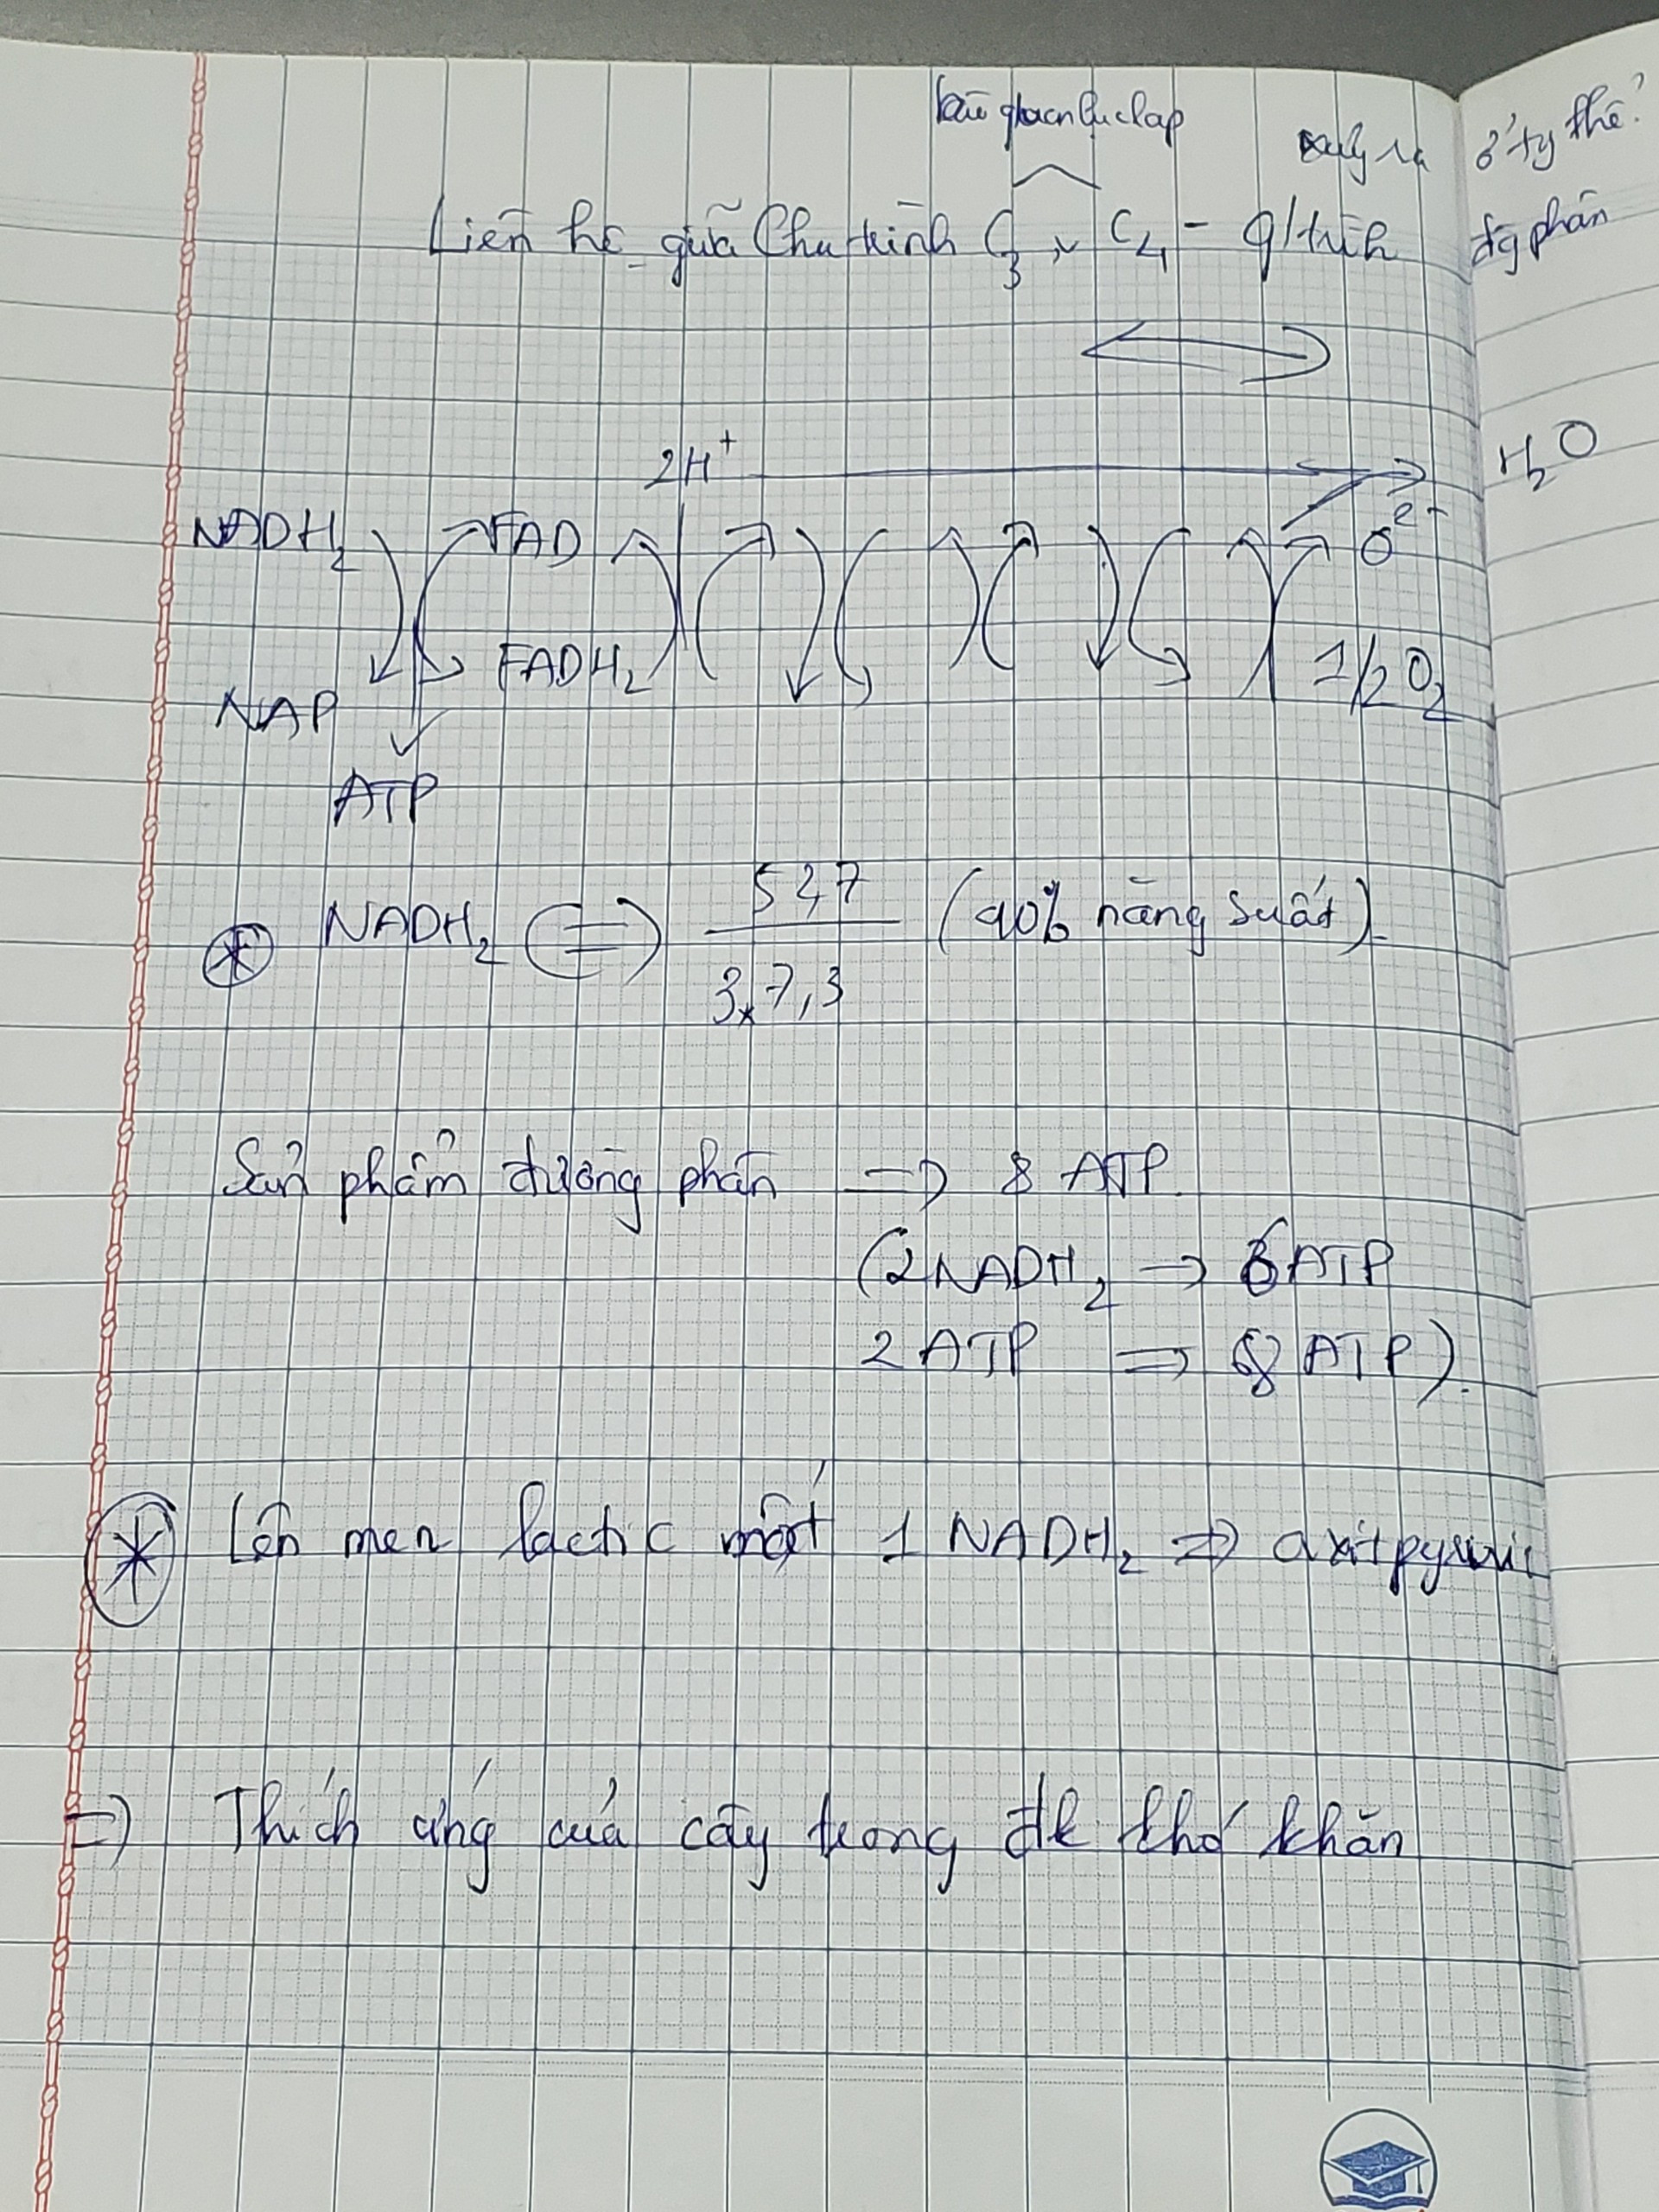 bào quan lục lạp
xảy ra ở ty thể?
Liên hệ giữa Chu trình C3, C4 - q/trình đg phân
2H+ H2O
NADH2 FAD O2-
NAP FADH2 1/2 O2
ATP
* NADH2 <=> 52,7 / 3x7,3 (40% năng suất).
Sản phẩm đường phân => 8 ATP.
(2NADH2 -> 6 ATP
2 ATP => 8 ATP).
* Lên men lactic mất 1 NADH2 => axit pyruvic
=> Thích ứng của cây trong đk khó khăn